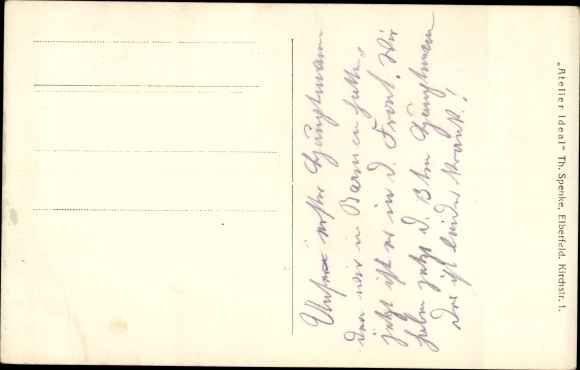 Unser erster Hauptmann
den wir in Barmen hatten,
jetzt ist er in d. Front. Wir
haben jetzt d. 3ten Hauptmann
der ist leider krank!
„Atelier Ideal“ Th. Spenke, Elberfeld, Kirchstr. 1.